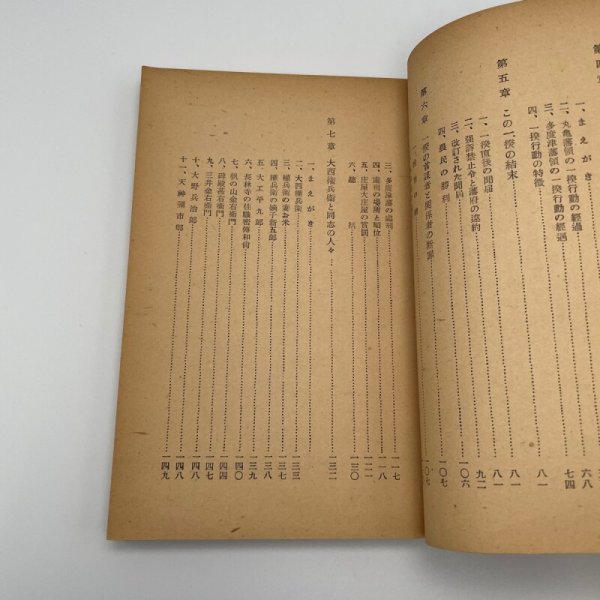 一、まえがき
二、丸亀藩領の一揆行動の経過……六八
三、多度津藩領の一揆行動の経過……七四
四、一揆行動の特徴……八一
第五章 この一揆の結末……八一
一、一揆直後の開届……九二
二、強訴禁止令と藩府の違約……一〇六
三、改訂された開届
四、農民の勝利……一〇七
第六章 一揆の
三、多度津藩の……一一七
四、……の場所と順位……一一八
五、庄屋大庄屋の……一二一
六、総括……一三〇
第七章 大西権兵衛と同志の人々……一三二
一、まえがき
二、大西権兵衛……一三三
三、権兵衛の妻お米……一三七
四、権兵衛の嫡子新五郎……一三八
五、大工平九郎……一三九
六、長林寺の住職密傳和尚……一四〇
七、帆の山金右衛門……一四四
八、碑殿甚右衛門……一四六
九、三井金右衛門……一四七
十、大野兵治郎……一四八
十一、天神彌市郎……一四八
一四九